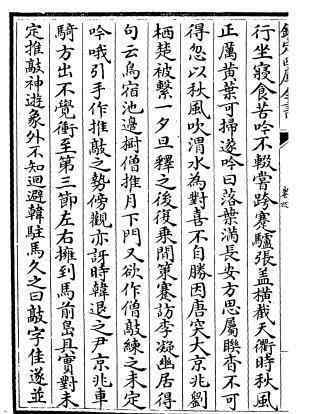 行坐寢食苦吟不輟嘗跨蹇驢張蓋橫截天衢時秋風
正厲黃葉可掃遂吟曰落葉滿長安方思屬聯杳不可
得忽以秋風吹渭水為對喜不自勝因唐突大京兆劉
栖楚被繫一夕旦釋之後復乗閒策蹇訪李凝幽居得
句云鳥宿池邊樹僧推月下門又欲作僧敲練之未定
吟哦引手作推敲之勢傍觀亦訝時韓退之尹京兆車
騎方出不覺衝至第三節左右擁到馬前島具實對未
定推敲神遊象外不知迴避韓駐馬久之曰敲字佳遂並